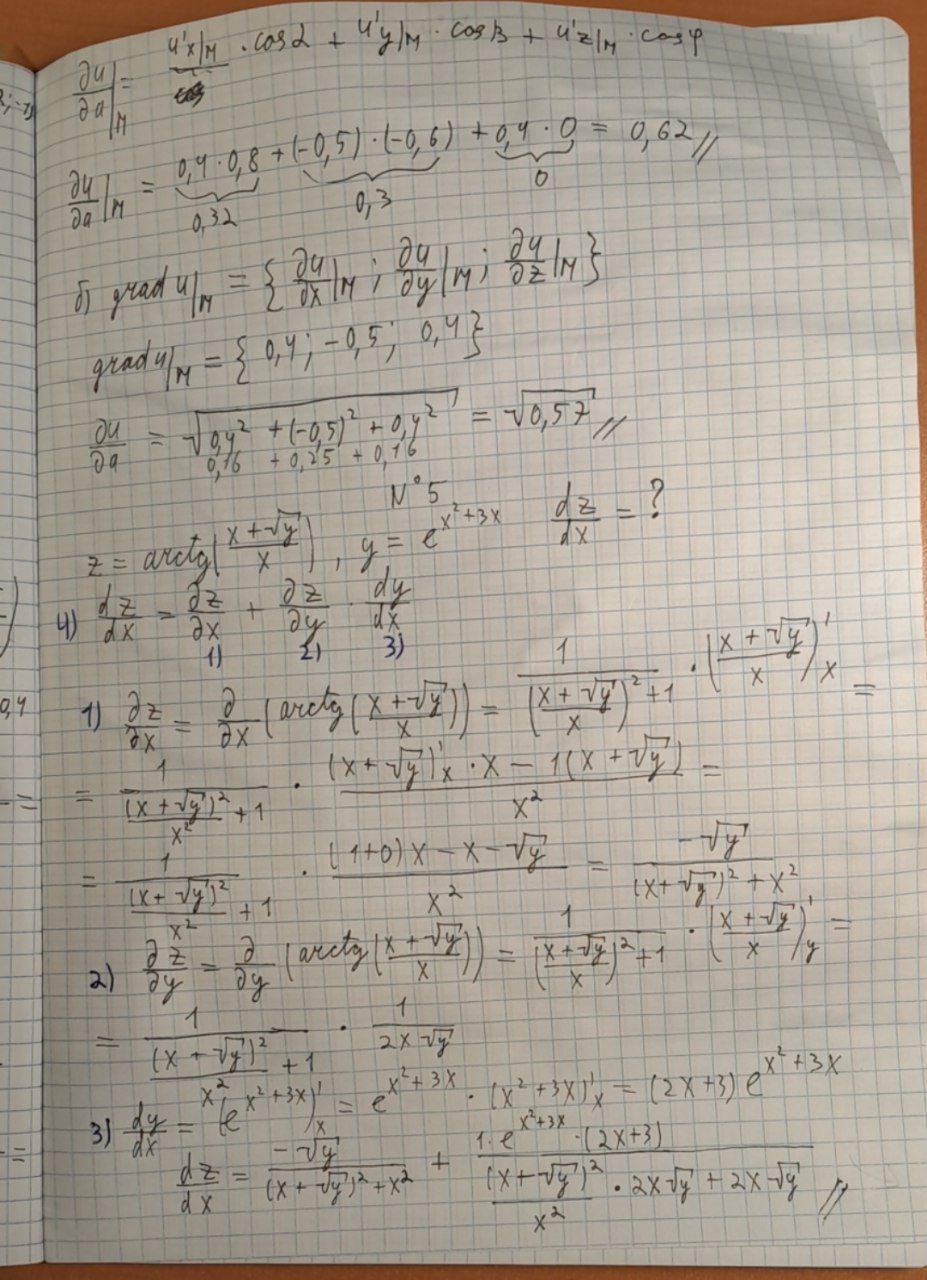 ∂u/∂a|M = u'x|M · cos α + u'y|M · cos β + u'z|M · cos φ
∂u/∂a|M = 0,4 · 0,8 + (-0,5) · (-0,6) + 0,4 · 0 = 0,62 //
0,32 0,3 0
б) grad u|M = { ∂u/∂x|M ; ∂u/∂y|M ; ∂u/∂z|M }
grad u|M = { 0,4 ; -0,5 ; 0,4 }
∂u/∂a = √(0,4² + (-0,5)² + 0,4²) = √0,57 //
0,16 + 0,25 + 0,16
N°5
z = arctg((x + √y)/x), y = e^(x²+3x) dz/dx = ?
4) dz/dx = ∂z/∂x + ∂z/∂y · dy/dx
1) 2) 3)
1) ∂z/∂x = ∂/∂x (arctg((x + √y)/x)) = 1/(((x + √y)/x)² + 1) · ((x + √y)/x)'x =
= 1/((x + √y)²/x² + 1) · ((x + √y)'x · x - 1(x + √y))/x² =
= 1/((x + √y)²/x² + 1) · ((1+0)x - x - √y)/x² = -√y/((x + √y)² + x²)
2) ∂z/∂y = ∂/∂y (arctg((x + √y)/x)) = 1/(((x + √y)/x)² + 1) · ((x + √y)/x)'y =
= 1/((x + √y)²/x² + 1) · 1/(2x√y)
3) dy/dx = (e^(x²+3x))'x = e^(x²+3x) · (x² + 3x)'x = (2x+3) e^(x²+3x)
dz/dx = -√y/((x + √y)² + x²) + (1 · e^(x²+3x) · (2x+3))/((x + √y)²/x² · 2x√y + 2x√y) //